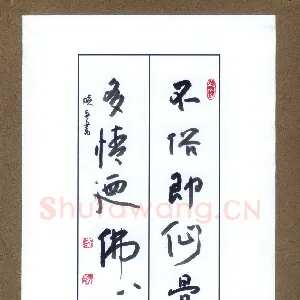 不俗即仙骨
多情迺佛
Shufawang.CN